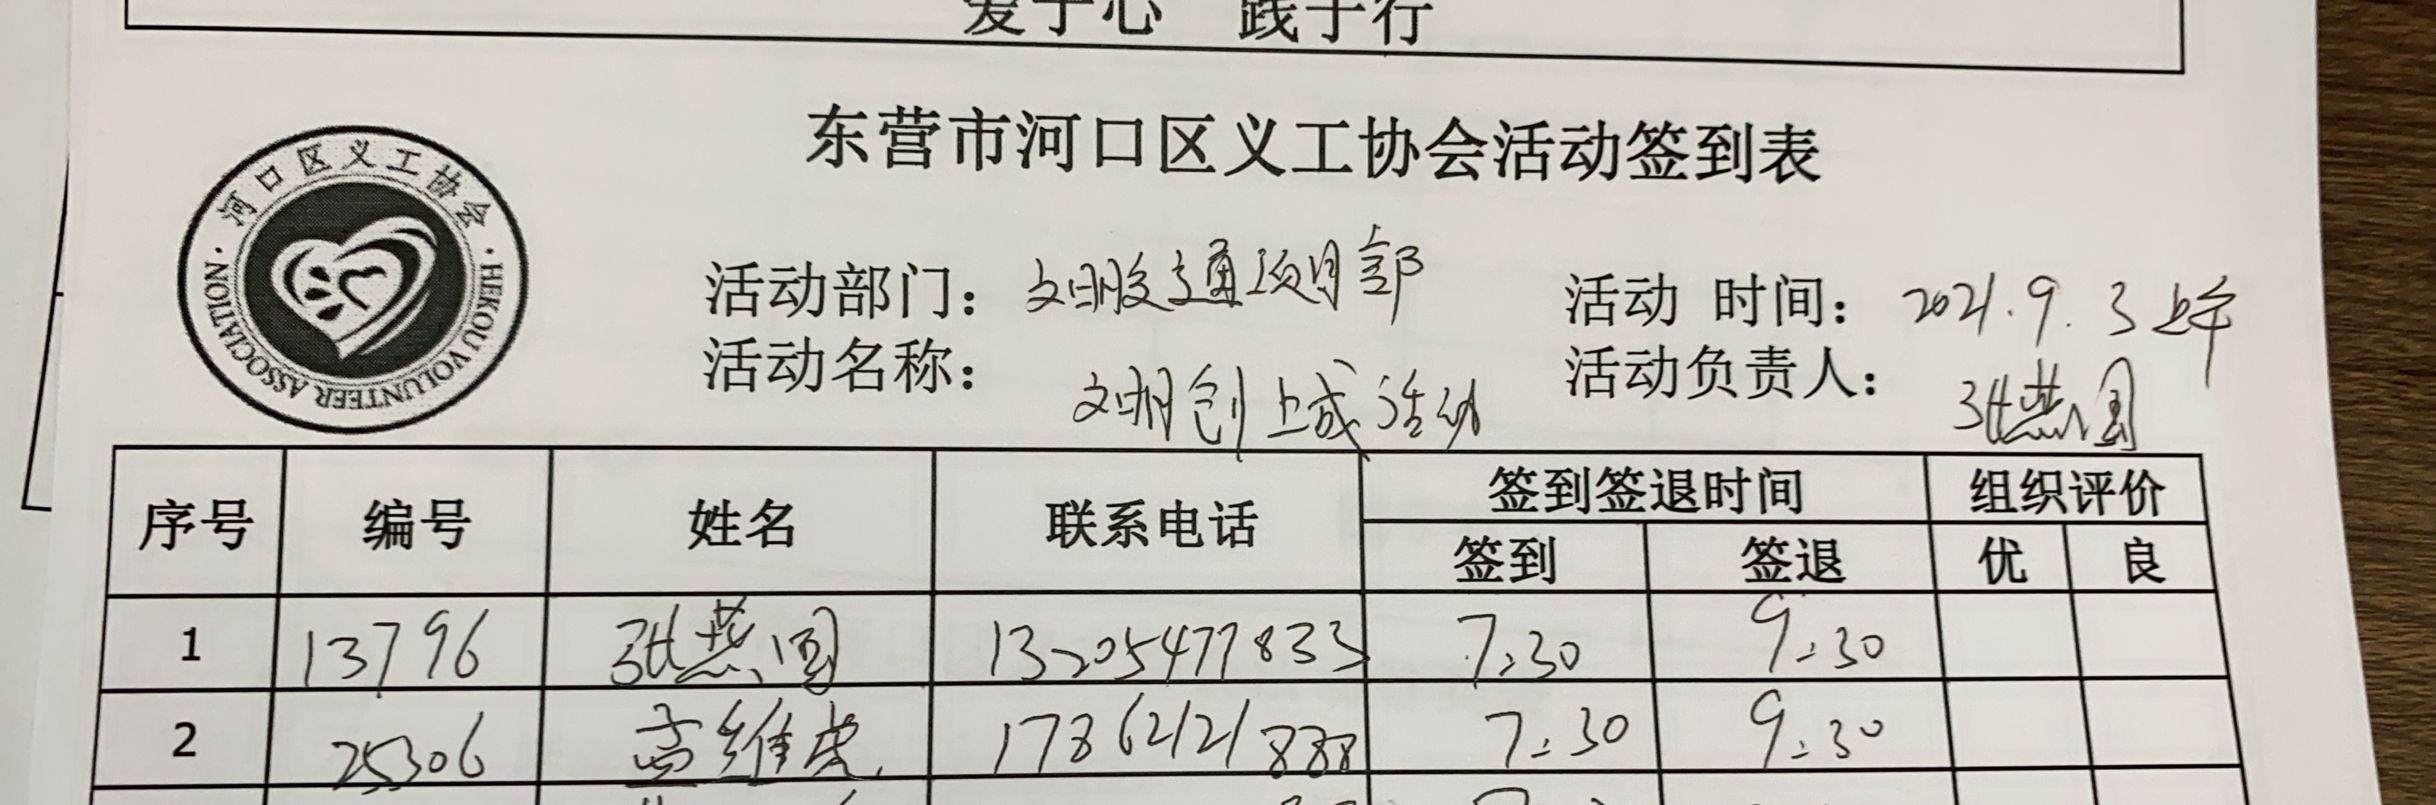 爱于心 践于行
东营市河口区义工协会活动签到表
河口区义工协会
HEKOU VOLUNTEER ASSOCIATION
活动部门： 文明交通项目部 活动 时间： 2021.9.3上午
活动名称： 文明创城活动 活动负责人： 张燕国
序号 编号 姓名 联系电话 签到签退时间 组织评价
签到 签退 优 良
1 13796 张燕国 13205477833 7:30 9:30
2 25306 高维忠 17862121888 7:30 9:30